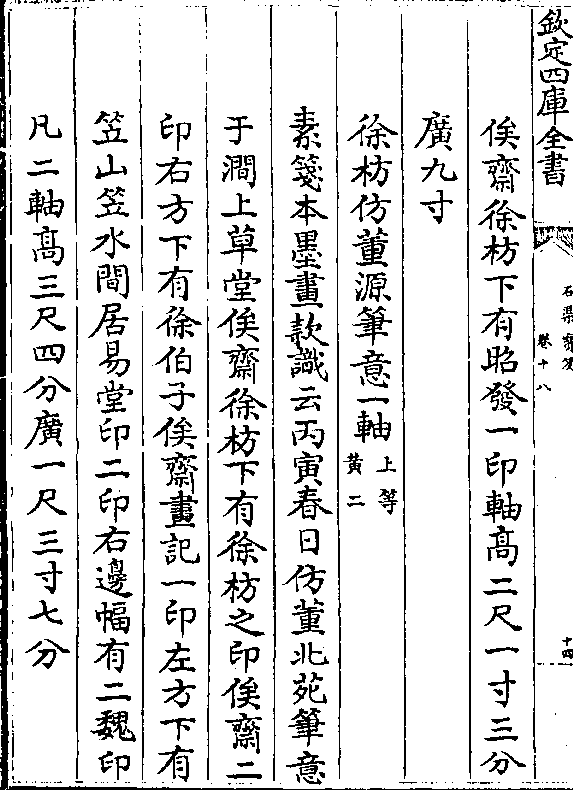 欽定四庫全書
石渠寶笈
卷十八
十四
俟齋徐枋下有昭發一印軸髙二尺一寸三分
廣九寸
徐枋仿董源筆意一軸上等黄二
素箋本墨畫款識云丙寅春日仿董北苑筆意
于澗上草堂俟齋徐枋下有徐枋之印俟齋二
印右方下有徐伯子俟齋畫記一印左方下有
笠山笠水間居易堂印二印右邊幅有二魏印
凡二軸髙三尺四分廣一尺三寸七分